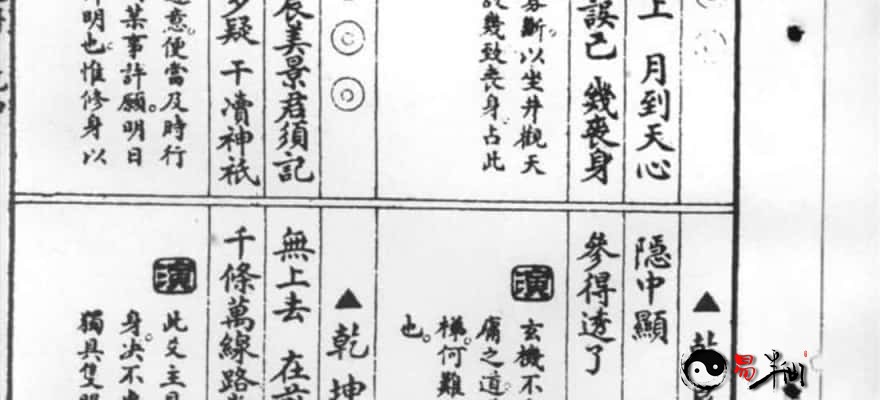 上 月到天心
誤己 幾喪身
斷。以坐井觀天
幾致喪身占此
◎
◎
辰美景君須記
多疑 干瀆神祇
意便當及時行
某事許願。明日
明也。惟修身以
▲乾
隱中顯
參得透了
演 玄機不
庸之道。
梯。何難
也。
▲乾坤
無上去 在前
千條萬線路
演 此爻主
身。決不
獨具隻眼
易半仙